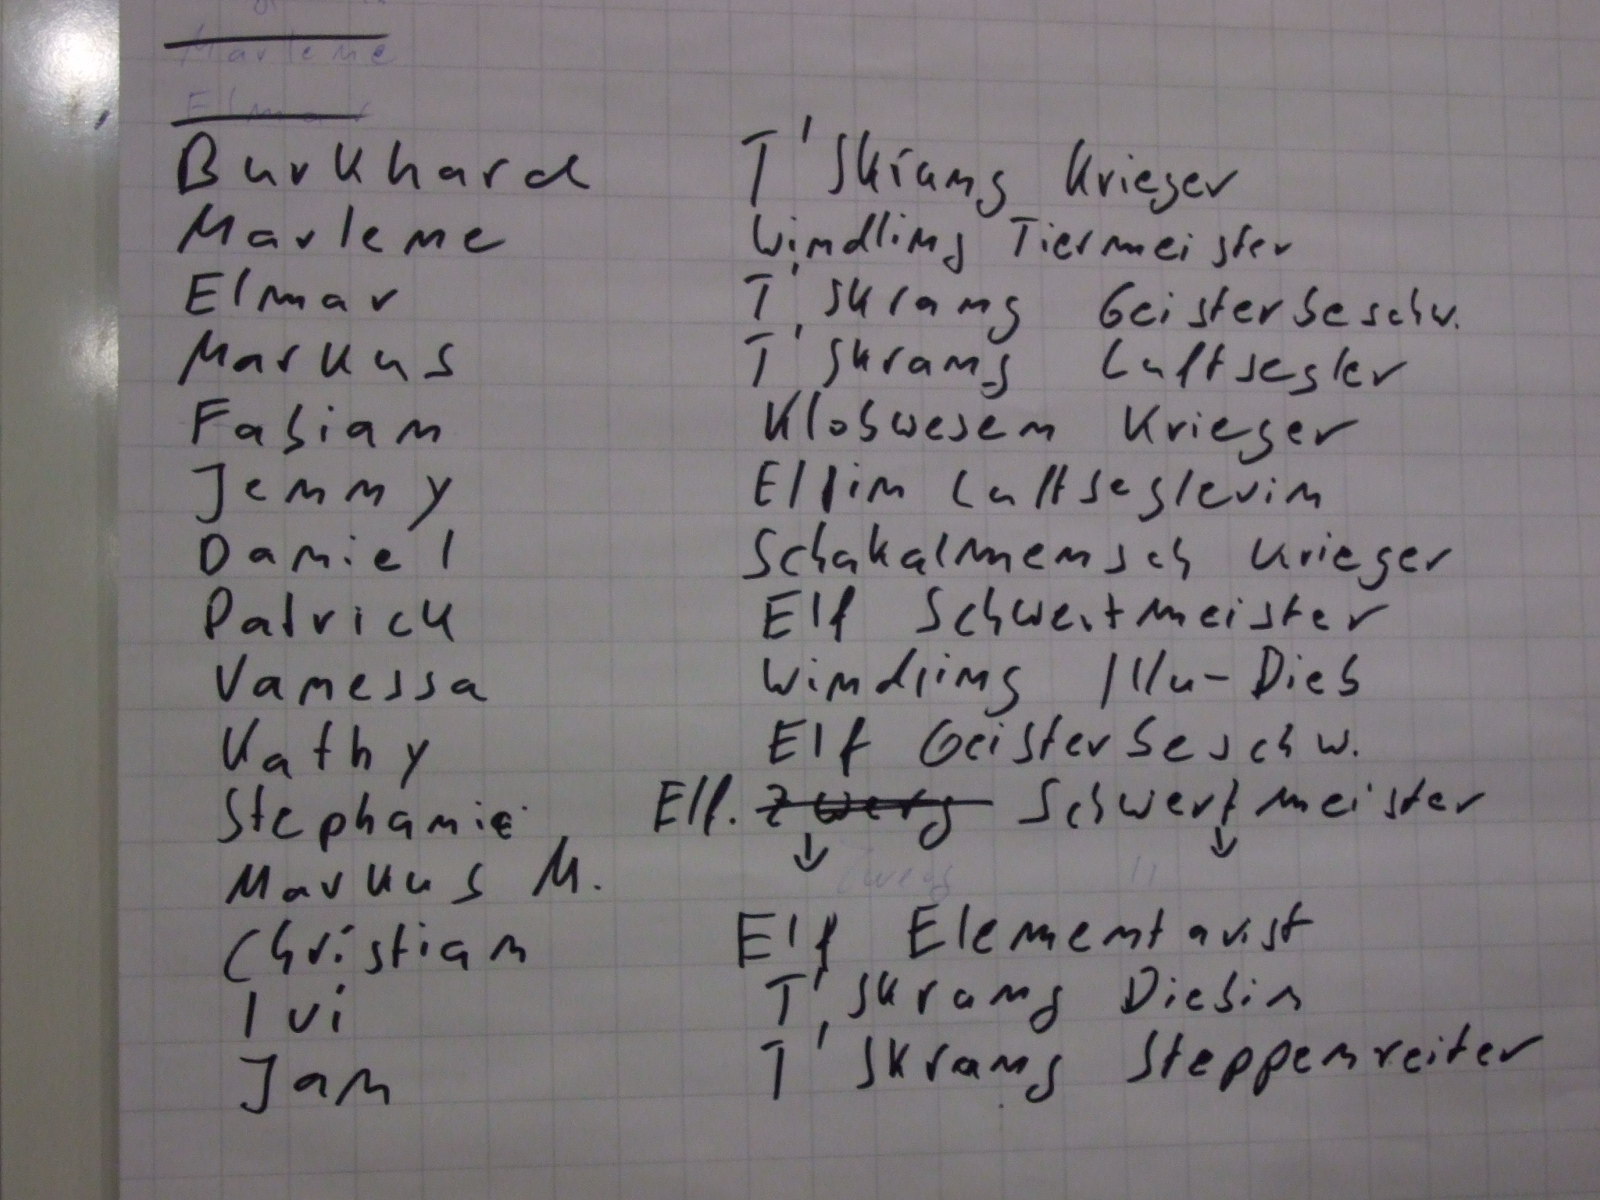 Marlene
Elmar
Burkhard T'Skrang Krieger
Marlene Windling Tiermeister
Elmar T'Skrang Geisterbeschw.
Markus T'Skrang Luftsegler
Fabian Klobwesen Krieger
Jenny Elfin Luftseglerin
Daniel Schakalmensch Krieger
Patrick Elf Schwertmeister
Vanessa Windling Illu-Dieb
Kathy Elf Geisterbeschw.
Stephanie Elf. Zwerg Schwertmeister
Markus M. ↓ ↓
Christian Elf Elementarist
Ivi T'Skrang Diebin
Jan T'Skrang Steppenreiter